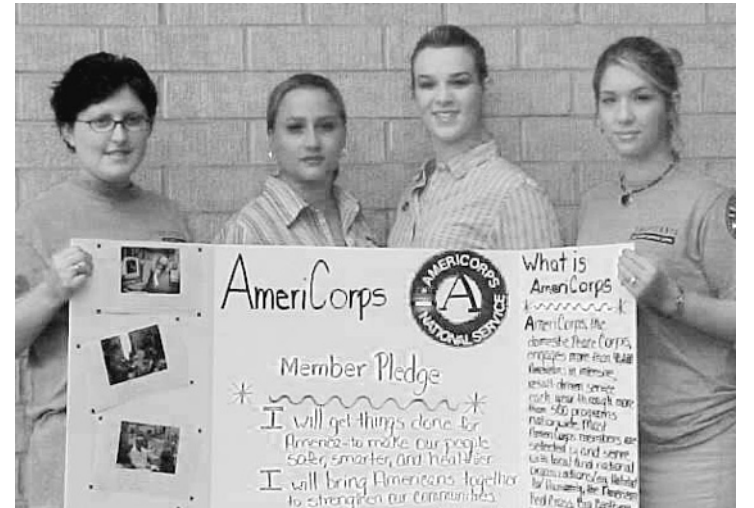 AmeriCorps
AMERICORPS
A
NATIONAL SERVICE
Member Pledge
I will get things done for
America-to make our people
safer, smarter, and healthier
I will bring Americans together
to strengthen our communities
What is
AmeriCorps
AmeriCorps, the
domestic Peace Corps,
engages more than
Americans in intensive,
result-driven service
each year through more
than 500 programs
nationwide. Most
AmeriCorps members are
selected by and serve
with local and national
organizations like Habitat
for Humanity, the American
Red Cross, Big Brothers